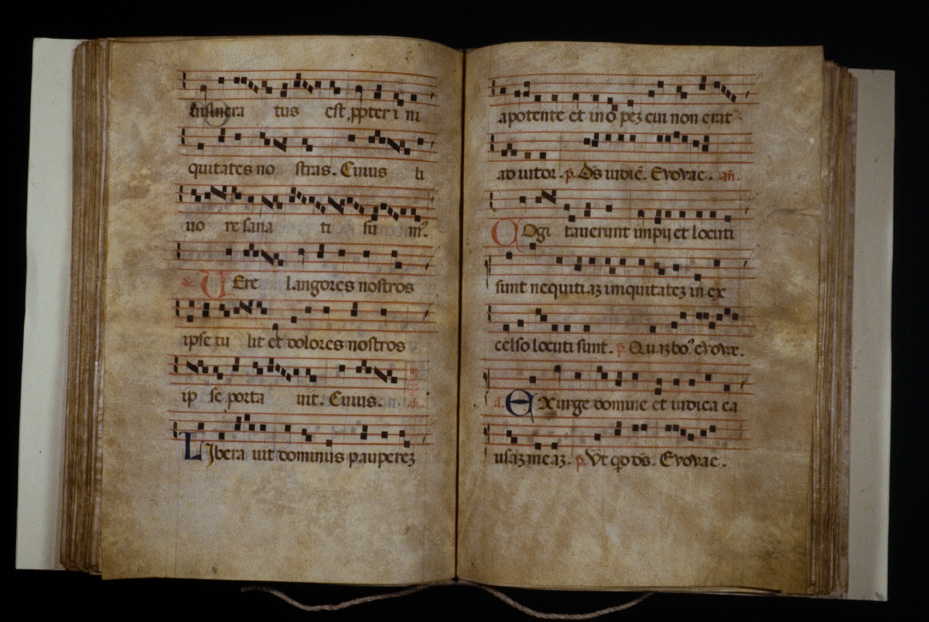 vulnera tus est ppter i ni
quitates no stras. Cuius li
uo re sana ti su mꝰ.
Vere langores nostros
ipse tu lit et dolores nostros
ip se porta uit. Cuius.
Libera uit dominus pauperez
a potente et inopez cui non erat
adiutor. p. Ds iudiciū. Evovae. an̄.
Cogi tauerunt impij et locuti
sunt nequitiaz iniquitatez in ex
celso locuti sunt. p. Quaz boꝰ evovae.
a. Exurge domine et iudica ca
usaz meaz. p. Vt qd ds. Evovae.